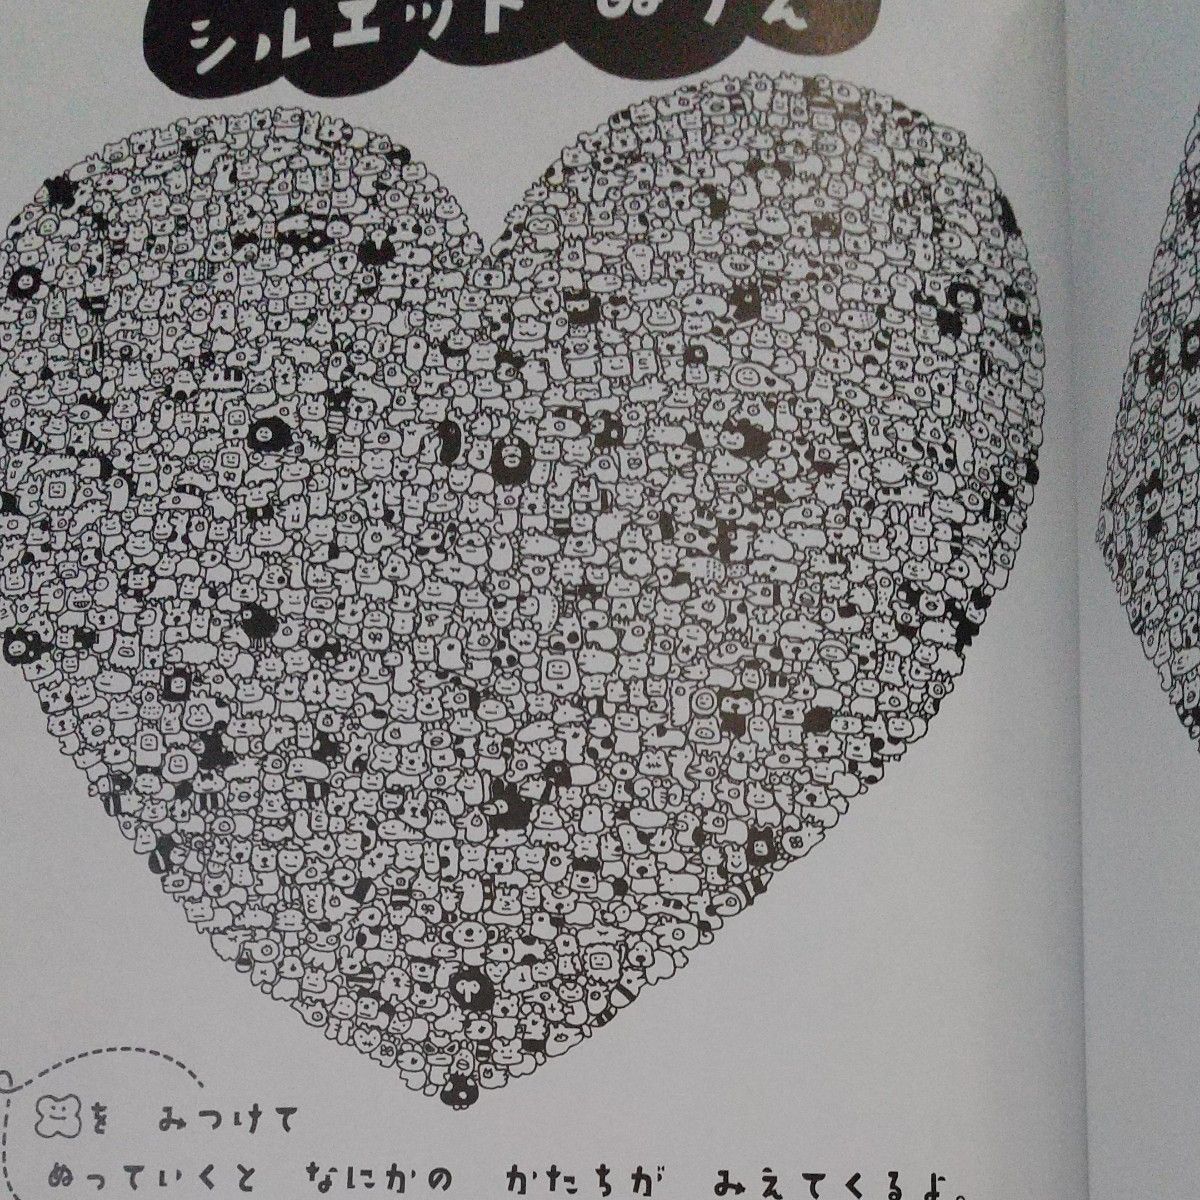 シルエット ぬりえ
を みつけて
ぬっていくと なにかの かたちが みえてくるよ。